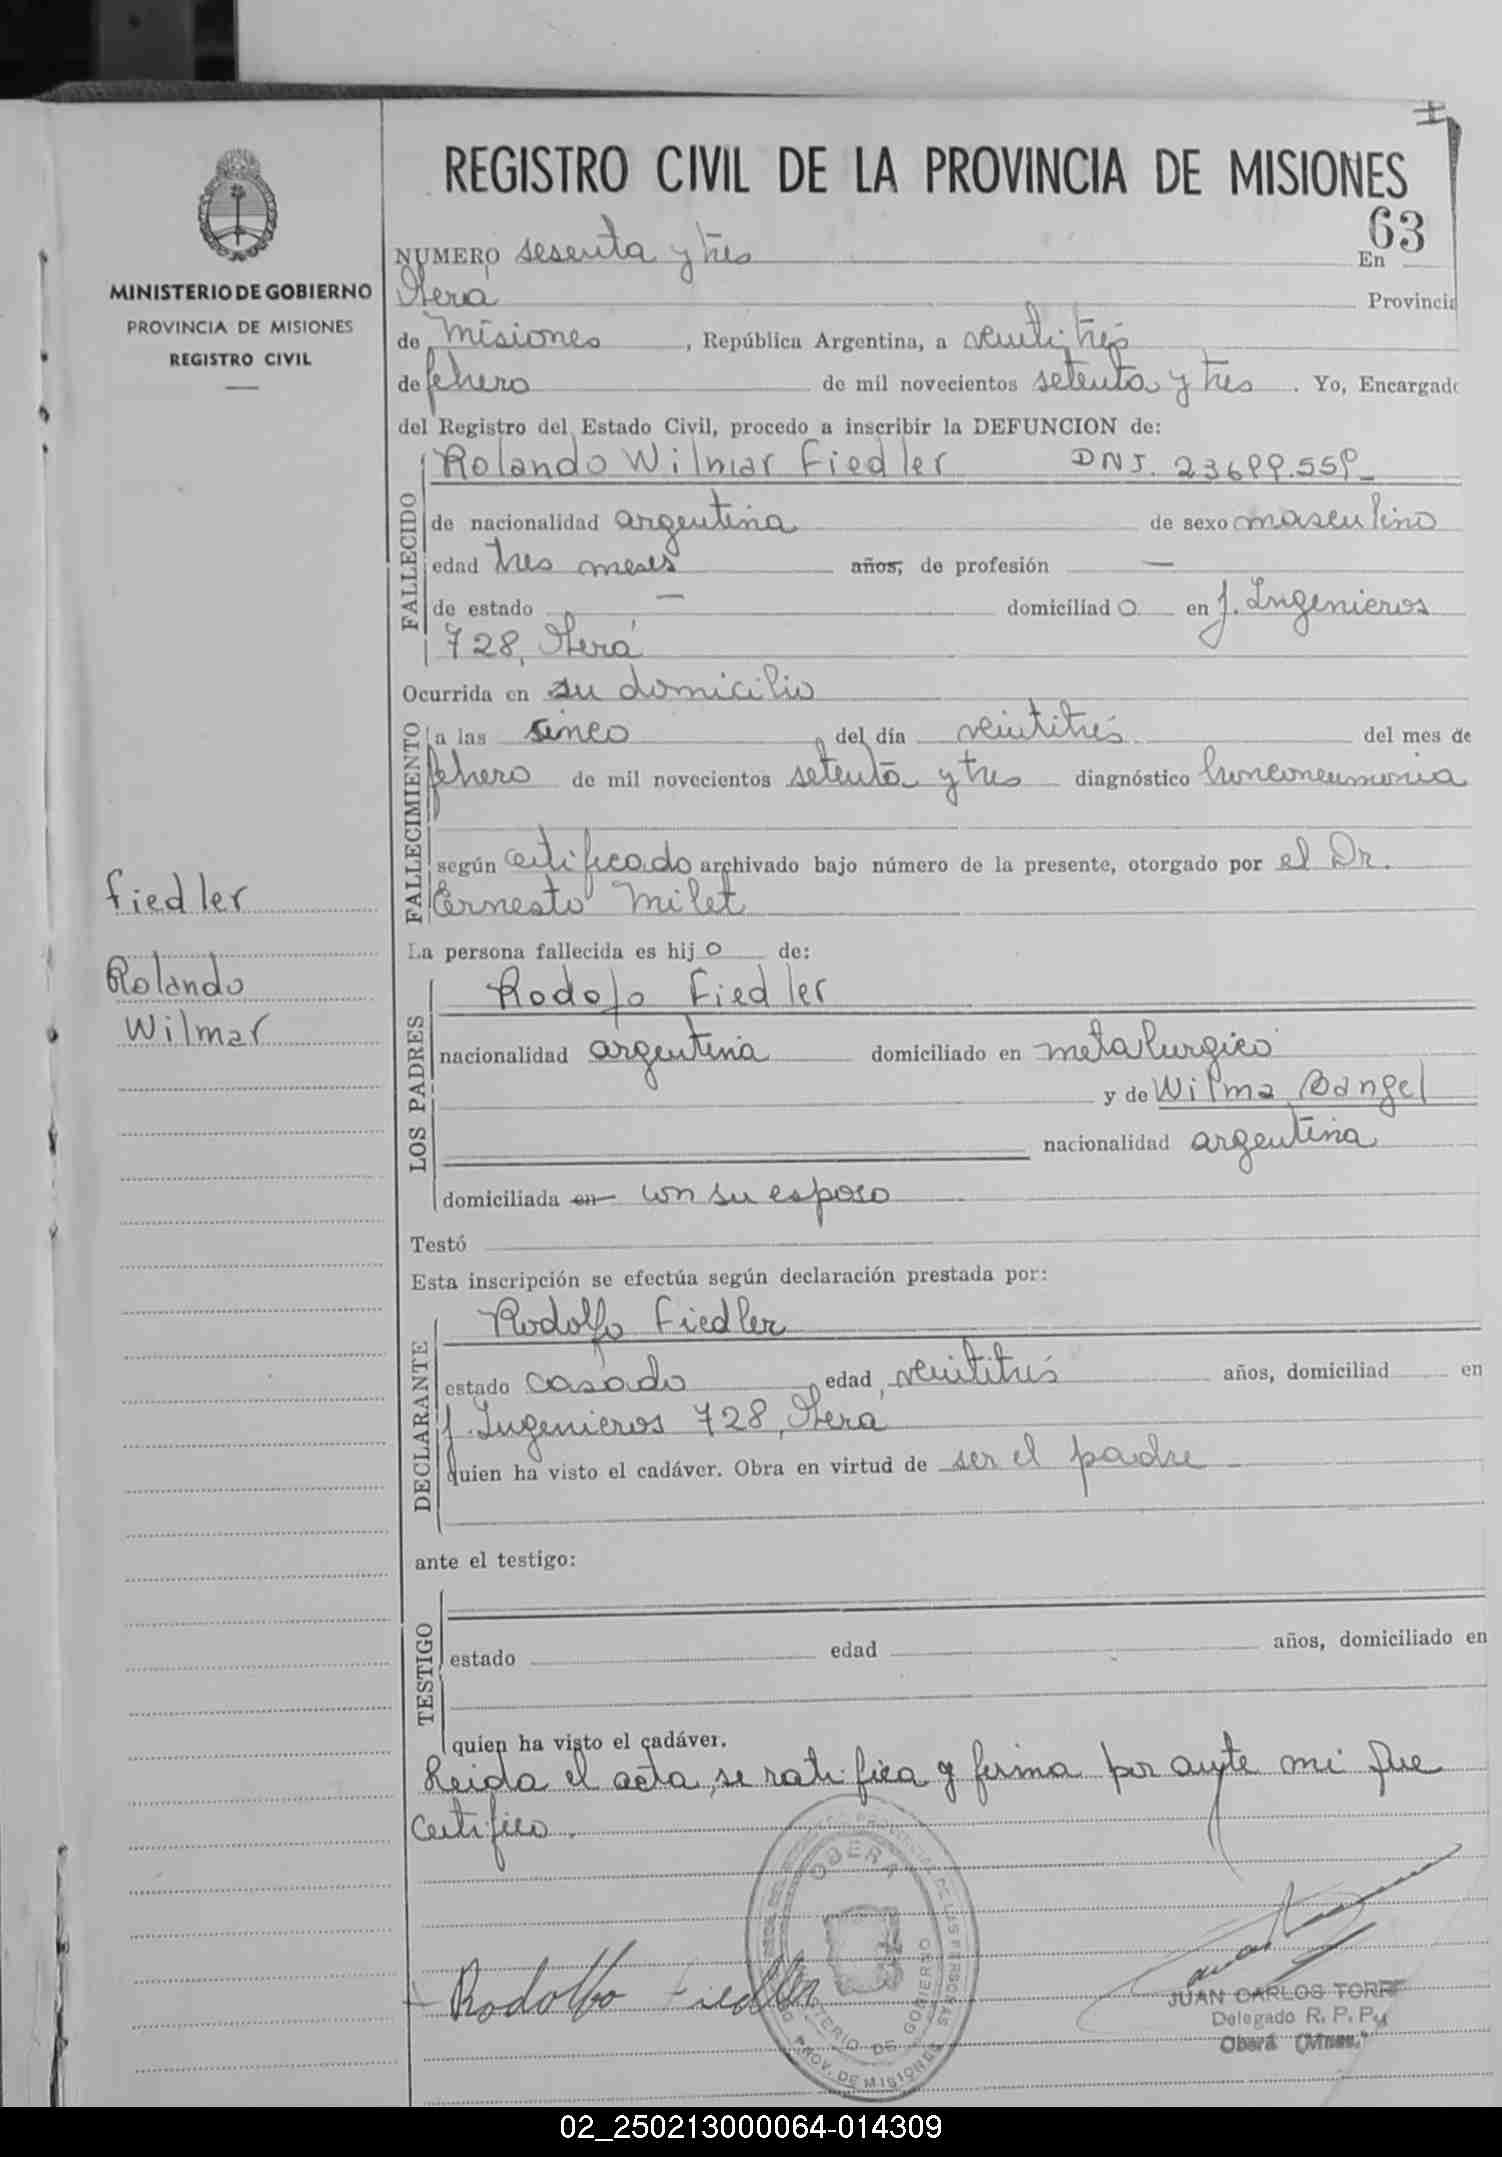 REGISTRO CIVIL DE LA PROVINCIA DE MISIONES
63
MINISTERIO DE GOBIERNO
PROVINCIA DE MISIONES
REGISTRO CIVIL
NUMERO sesenta y tres En
Oberá Provincia
de Misiones, República Argentina, a veintitrés
de febrero de mil novecientos setenta y tres. Yo, Encargado
del Registro del Estado Civil, procedo a inscribir la DEFUNCION de:
FALLECIDO
Rolando Wilmar Fiedler DNI.
de nacionalidad argentina de sexo masculino
edad tres meses años, de profesión —
de estado — domiciliado en J. Ingenieros
728, Oberá
Ocurrida en su domicilio
FALLECIMIENTO
a las sinco del día veintitrés del mes de
febrero de mil novecientos setenta y tres diagnóstico
según certificado archivado bajo número de la presente, otorgado por el Dr.
Ernesto Milet
Fiedler
Rolando
Wilmar
La persona fallecida es hijo de:
LOS PADRES
Rodofo Fiedler
nacionalidad argentina domiciliado en metalurgico
y de Wilma
nacionalidad argentina
domiciliada en con su esposo
Testó
Esta inscripción se efectúa según declaración prestada por:
DECLARANTE
Rodolfo Fiedler
estado casado edad veintitrés años, domiciliad en
J. Ingenieros 728, Oberá
quien ha visto el cadáver. Obra en virtud de ser el padre
ante el testigo:
TESTIGO
estado edad años, domiciliado en
quien ha visto el cadáver.
Leida el acta, se ratifica y firma por ante mi que
certifico.
OBERA
MINISTERIO DE GOBIERNO
PROV. DE MISIONES
Rodolfo Fiedler
JUAN CARLOS TORRE
Delegado R. P. P.
Oberá (Mnes.)
02_250213000064-014309